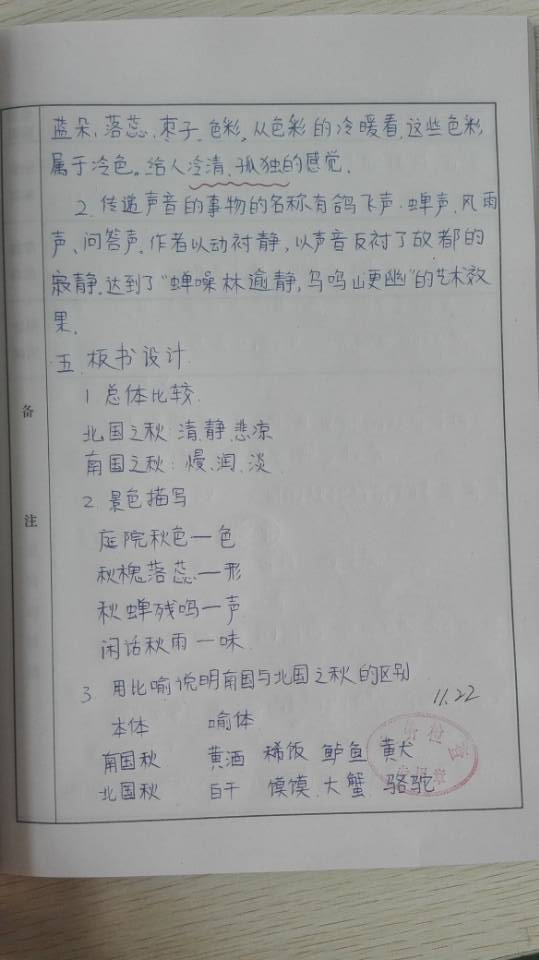 蓝朵、落蕊、枣子、色彩,从色彩的冷暖看,这些色彩
属于冷色。给人冷清、孤独的感觉.
2. 传递声音的事物的名称有鸽飞声、蝉声、风雨
声、问答声。作者以动衬静,以声音反衬了故都的
寂静.达到了“蝉噪林逾静,鸟鸣山更幽”的艺术效
果.
五. 板书设计
1 总体比较.
北国之秋:清、静、悲凉
南国之秋:慢、润、淡
2. 景色描写
庭院秋色—色
秋槐落蕊—形
秋蝉残鸣—声
闲话秋雨—味
3. 用比喻说明南国与北国之秋的区别
11.22
本体 喻体
南国秋 黄酒 稀饭 鲈鱼 黄犬
北国秋 白干 馍馍、大蟹 骆驼
备
注